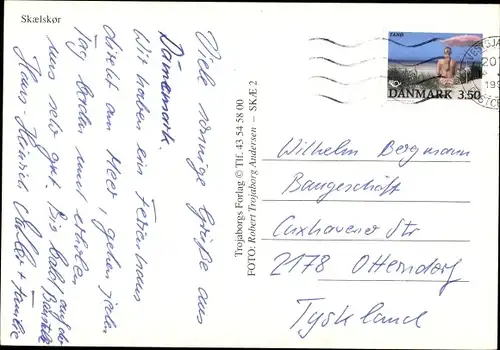 Skælskør
Viele sonnige Grüße aus
Dänemark.
Wir haben ein Ferienhaus
direkt am Meer, gehen jeden
Tag baden und erholen
uns sehr gut. Bis bald / auf der
Baustelle
Hans-Heinrich + Familie
Trojaborgs Forlag © Tlf. 43 54 58 00
FOTO: Robert Trojaborg Andersen – SKÆ 2
FANØ
DANMARK 3.50
Wilhelm Bergmann
Baugeschäft
Cuxhavener Str
2178 Otterndorf
Tyskland